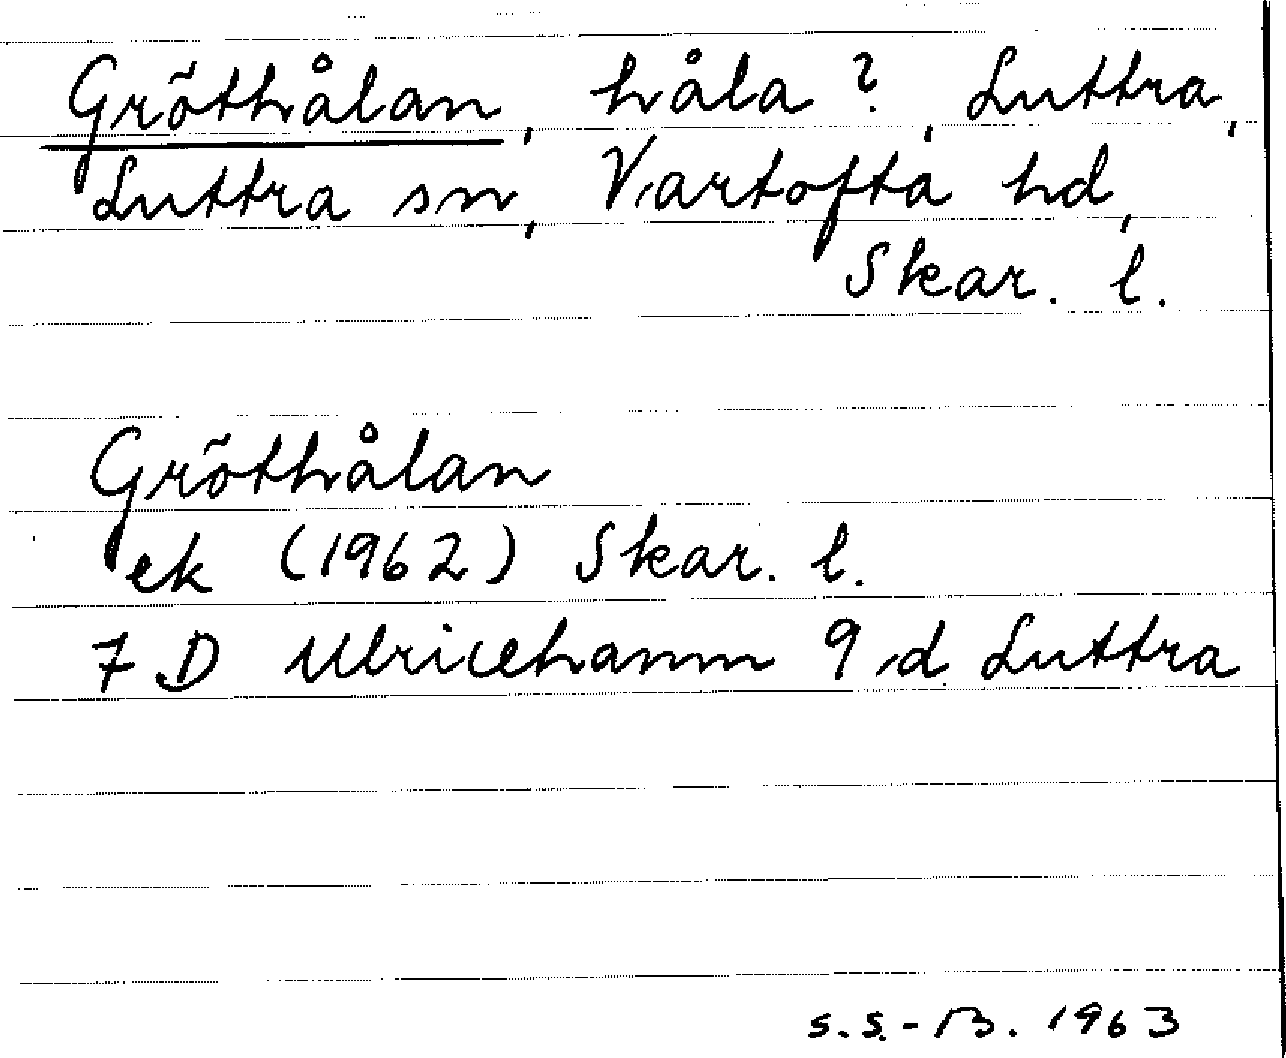 Gröthålan, håla?, Luttra,
Luttra sn, Vartofta hd,
Skar. l.
Gröthålan
ek (1962) Skar. l.
7 D Ulricehamn 9 d Luttra
S.S.-B. 1963